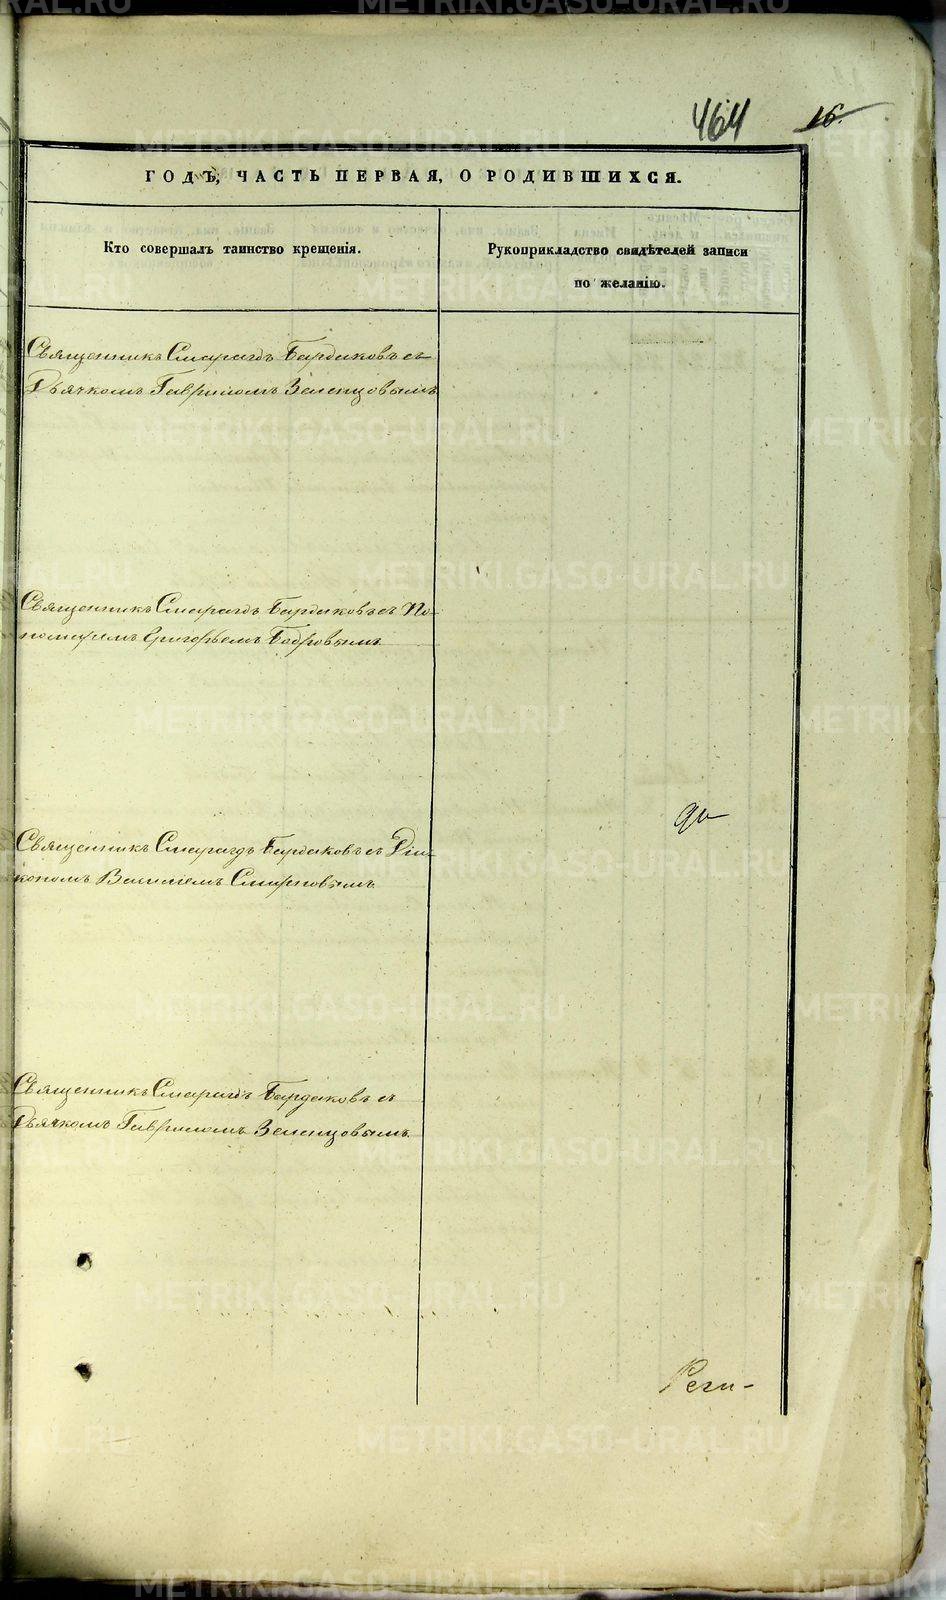 464 16.
ГОДЪ, ЧАСТЬ ПЕРВАЯ, О РОДИВШИХСЯ.
Кто совершалъ таинство крещенія.
Рукоприкладство свидѣтелей записи
по желанію.
Священникъ Смарагдъ Бардаковъ съ
Дьячкомъ Гавриломъ Зеленцовымъ
Священникъ Смарагдъ Бардаковъ съ По-
номаремъ Григорьемъ Бобровымъ
Священникъ Смарагдъ Бардаковъ съ Діа-
кономъ Василіемъ Смирновымъ
Священникъ Смарагдъ Бардаковъ съ
Дьячкомъ Гавриломъ Зеленцовымъ.
METRIKI.GASO-URAL.RU